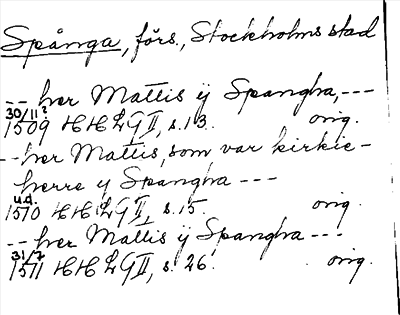 Spånga, förs., Stockholms stad
-- her Mattis ij Spangha, ---
30/11?
1509 HHLG II, s. 13. orig.
-- her Mattis, som var kirkie-
herre ij Spangha ---
u.d.
1510 HHLG II, s. 15. orig.
-- her Mattis ij Spangha ---
31/7
1511 HHLG II, s. 26. orig.